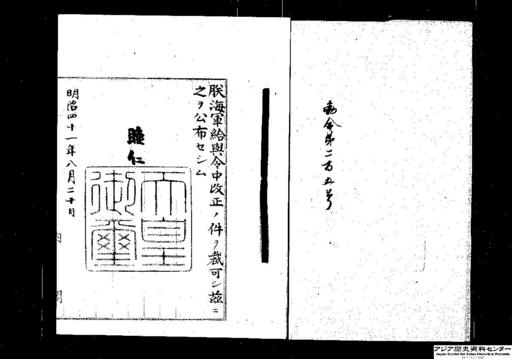 勅令第二百五号
朕海軍給與令中改正ノ件ヲ裁可シ茲ニ
之ヲ公布セシム
睦仁
天皇
御璽
明治四十一年八月二十日
内閣
アジア歴史資料センター
Japan Center for Asian Historical Records